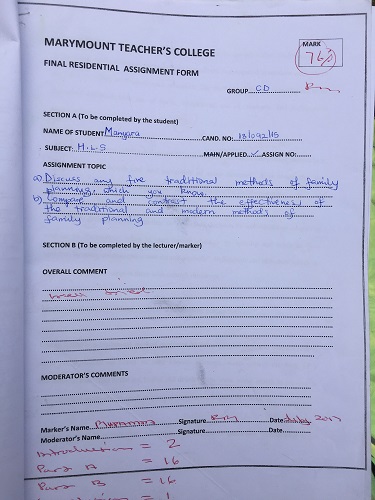 MARYMOUNT TEACHER'S COLLEGE
MARK
76%
FINAL RESIDENTIAL ASSIGNMENT FORM
GROUP CD
SECTION A (To be completed by the student)
NAME OF STUDENT Manyara CAND. NO: 13/092/15
SUBJECT: H.L.S MAIN/APPLIED ASSIGN NO:
ASSIGNMENT TOPIC
a) Discuss any five traditional methods of family
planning which you know.
b) Compare and contrast the effectiveness of
the traditional and modern methods of
family planning
SECTION B (To be completed by the lecturer/marker)
OVERALL COMMENT
MODERATOR'S COMMENTS
Marker's Name Signature Date 2017
Moderator's Name Signature Date
Introduction = 2
Part A = 16
Part B = 16
= 1